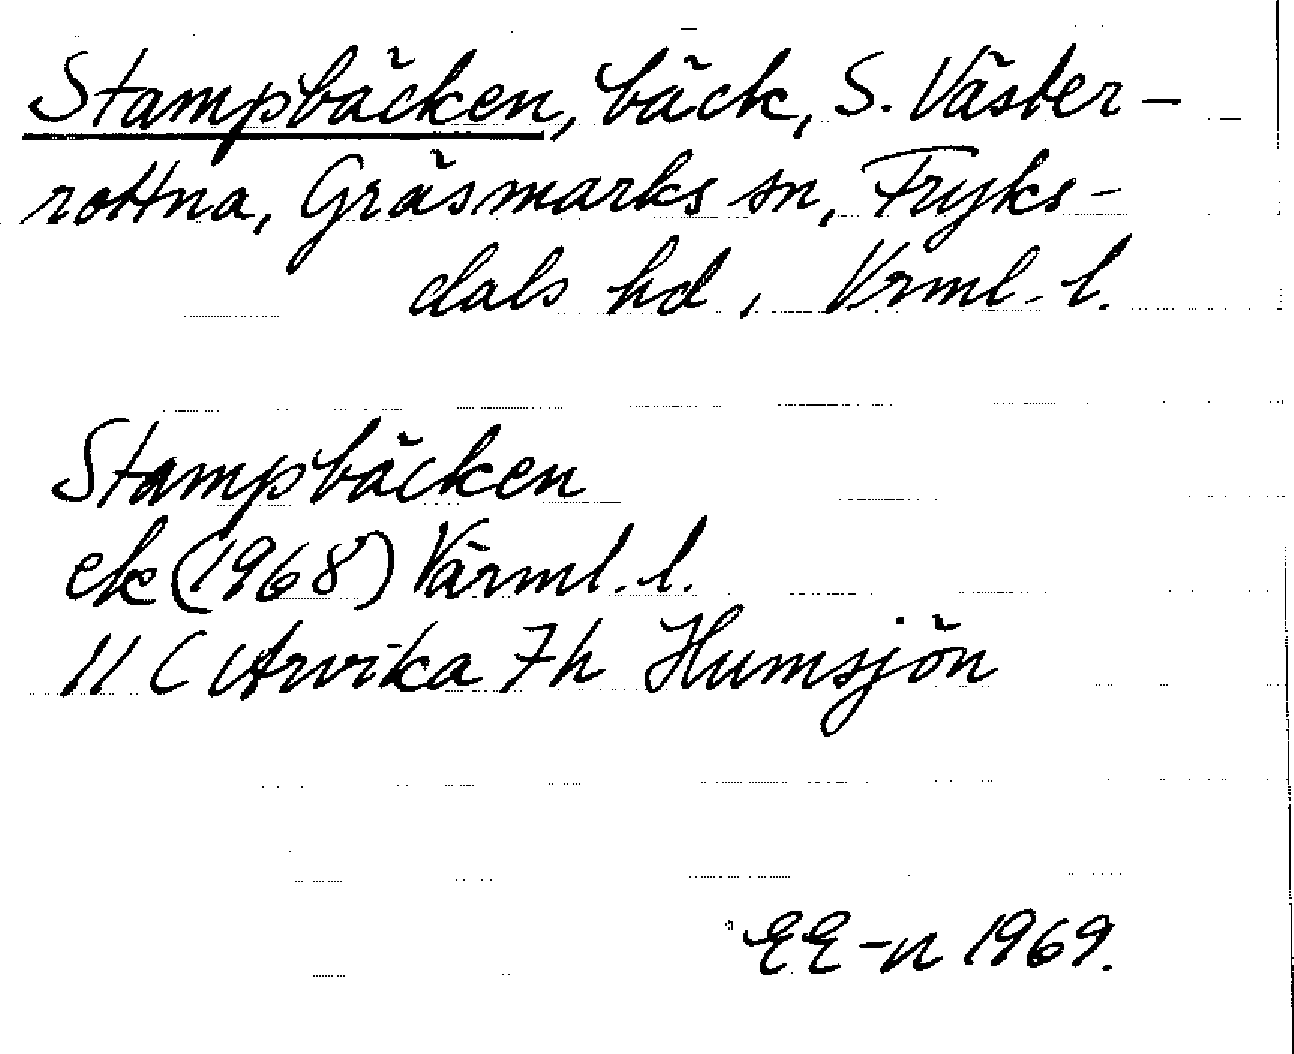 Stampbäcken, bäck, S. Väster-
rottna, Gräsmarks sn, Fryks-
dals hd, Vrml. l.
Stampbäcken
ek (1968) Värml. l.
11 C Arvika 7h Humsjön
EE-n 1969.